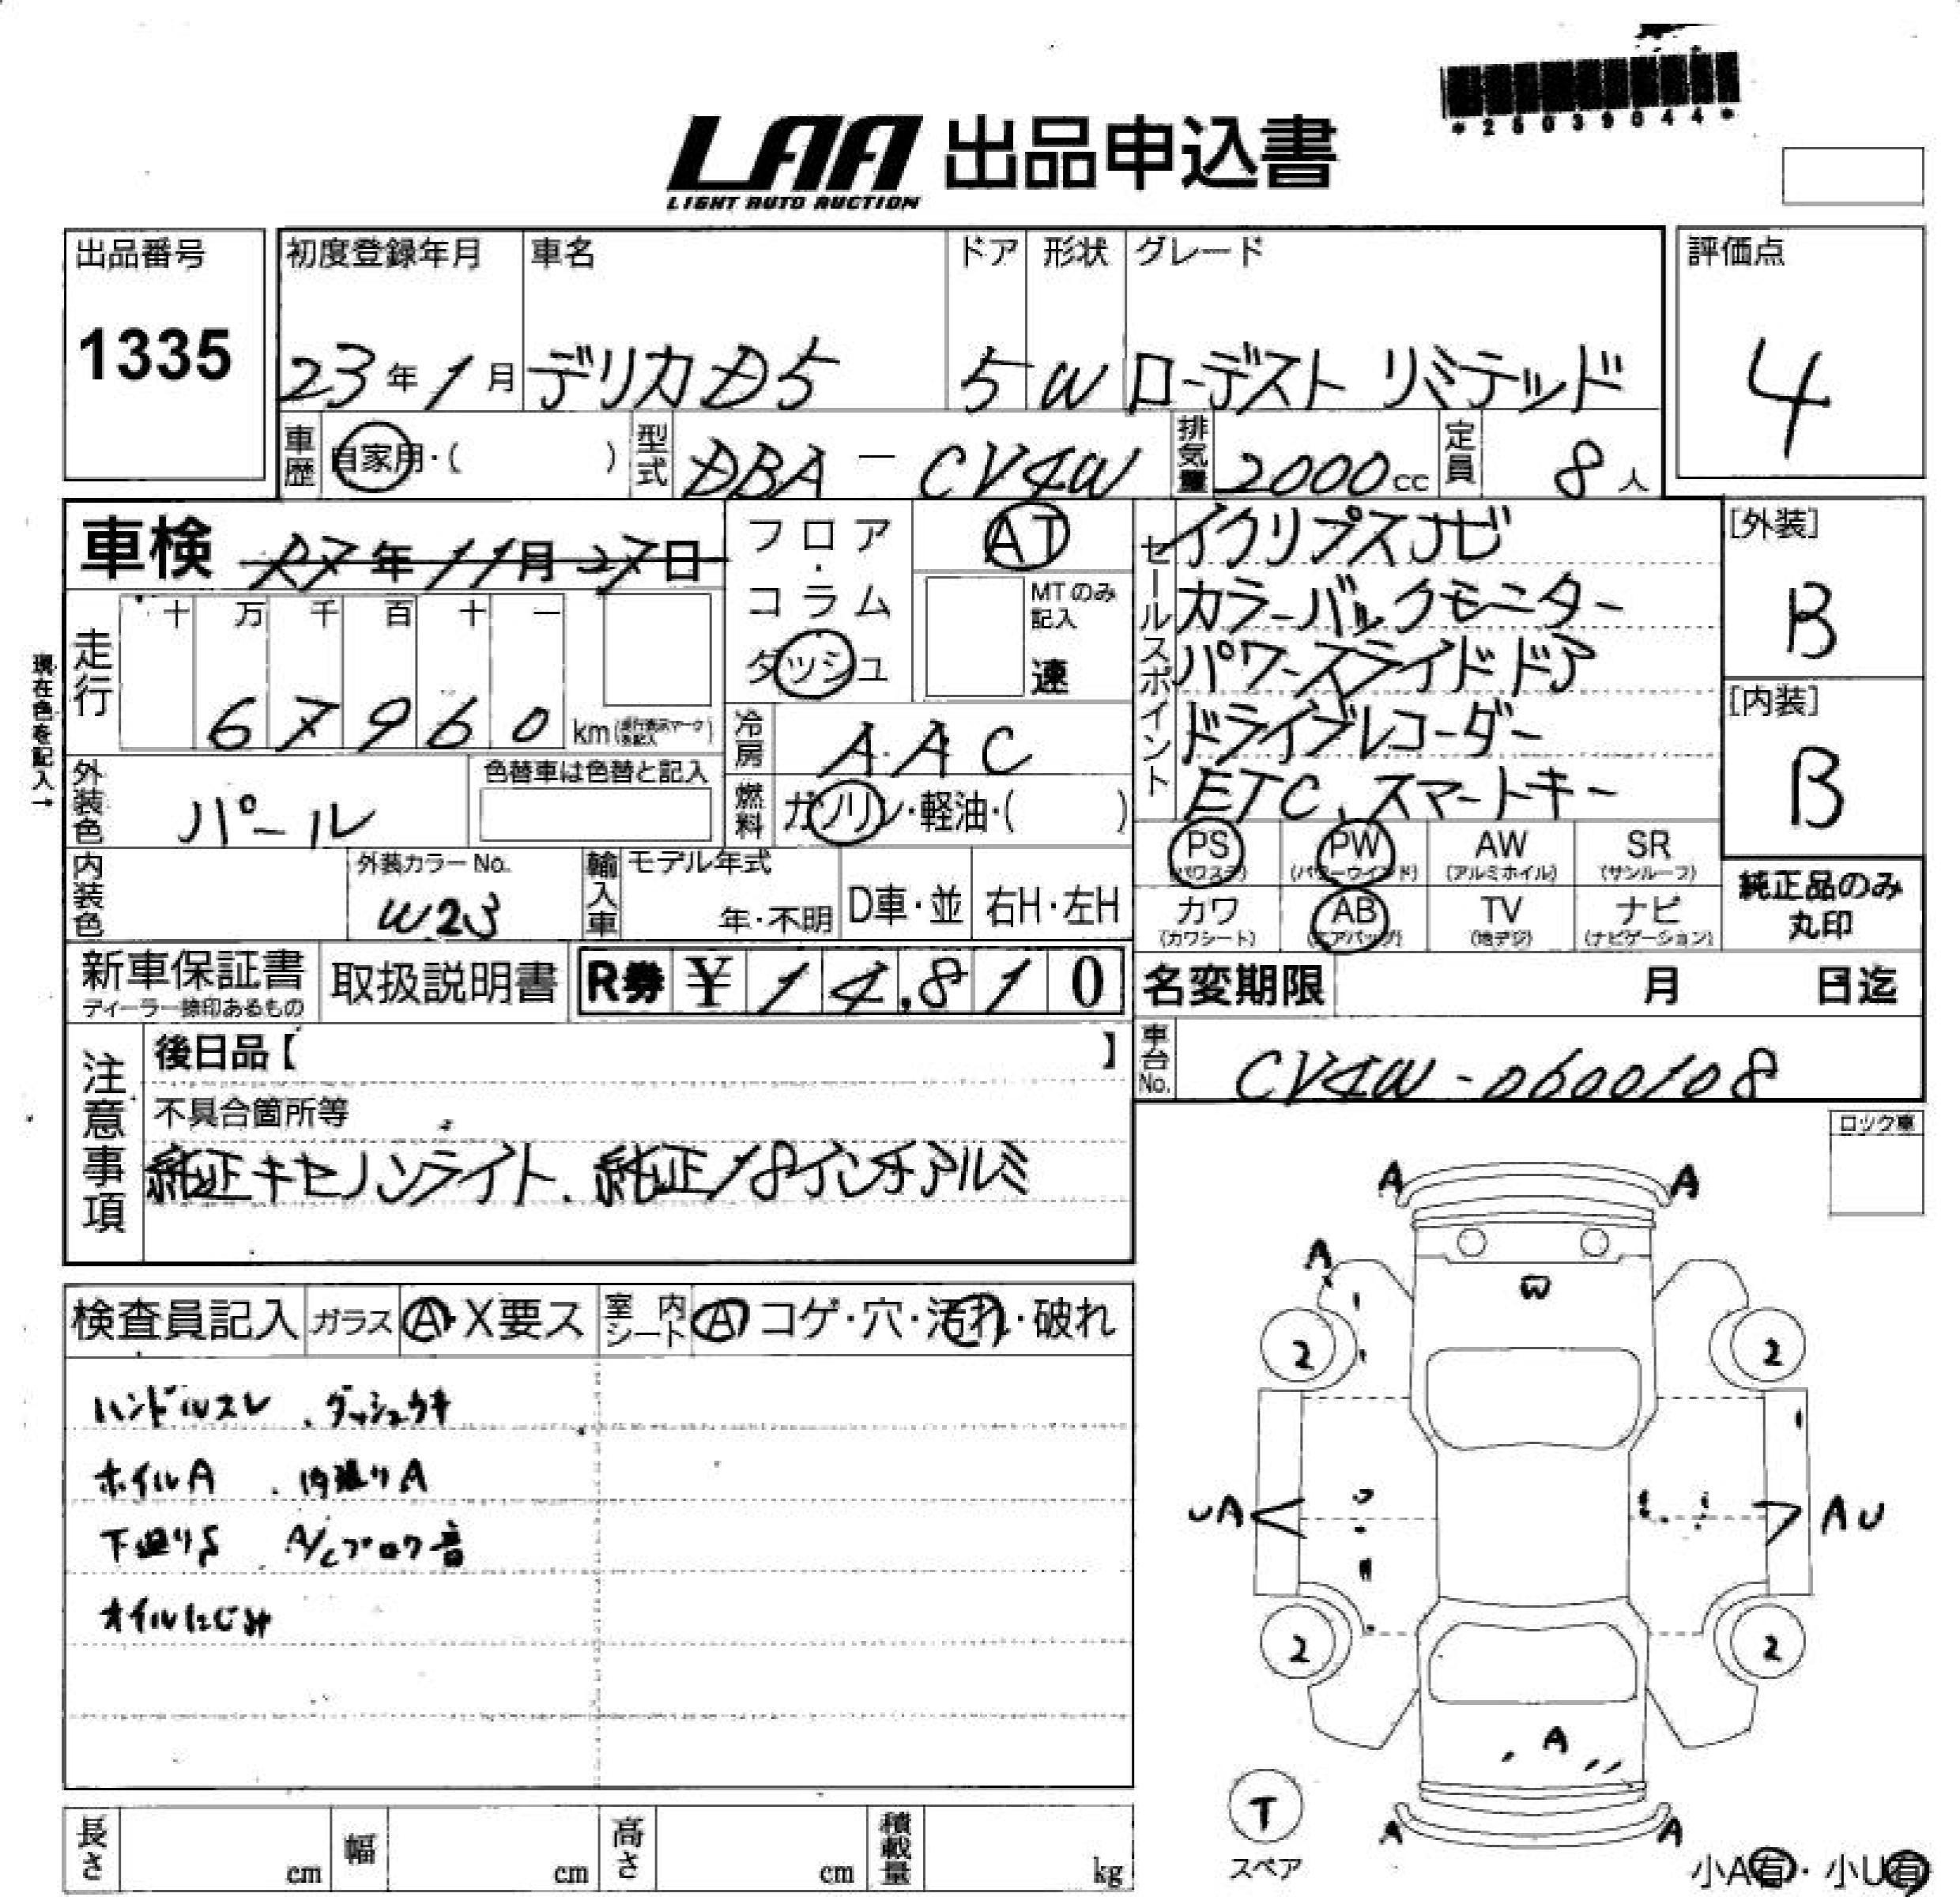 *25039044*
LAA 出品申込書
LIGHT AUTO AUCTION
出品番号 1335
初度登録年月 23年1月
車名 デリカD5
ドア 5
形状 W
グレード ローデスト リミテッド
評価点 4
車歴 自家用・( )
型式 DBA - CV4W
排気量 2000cc
定員 8人
車検 27年11月27日
フロア・コラム ダッシュ
AT
MTのみ記入 速
セールスポイント
イクリプスナビ
カラーバックモニター
パワースライドドア
ドライブレコーダー
ETC、スマートキー
[外装] B
[内装] B
現在色を記入→
走行 十 万 千 百 十 一
67960 km
冷房 AAC
外装色 パール
色替車は色替と記入
燃料 ガソリン・軽油・( )
PS (パワステ) PW (パワーウインド) AW (アルミホイル) SR (サンルーフ)
カワ (カワシート) AB (エアバッグ) TV (地デジ) ナビ (ナビゲーション)
純正品のみ丸印
内装色
外装カラーNo. W23
輸入車 モデル年式 年・不明 D車・並 右H・左H
新車保証書 ディーラー捺印あるもの
取扱説明書
R券 ¥14,810
名変期限 月 日迄
注意事項
後日品【 】
車台No. CV4W-0600108
不具合箇所等
純正キセノンライト、純正18インチアルミ
ロック車
検査員記入 ガラス A・X要ス 室内シート A コゲ・穴・汚れ・破れ
ハンドルスレ、ダッシュウキ
ホイルA、内張りA
下廻りS A/Cブロワ音
オイルにじみ
A A
A
W
2 2
UA AU
2 2
A
A A
T
スペア
小A有・小U有
長さ cm 幅 cm 高さ cm 積載量 kg